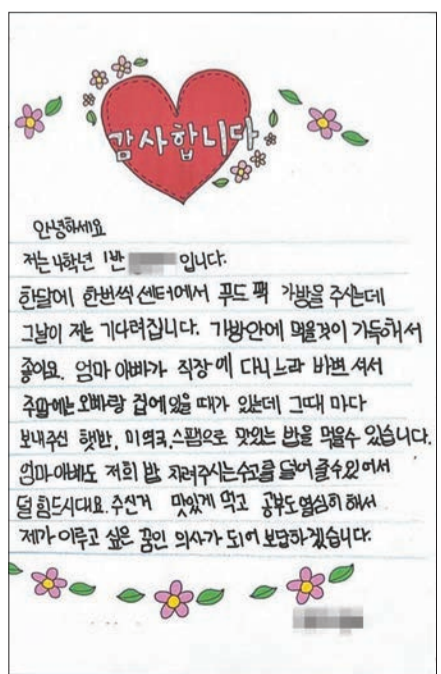 감사합니다
안녕하세요
저는 4학년 1반 입니다.
한달에 한번씩 센터에서 푸드 팩 가방을 주시는데
그날이 저는 기다려집니다. 가방안에 먹을것이 가득해서
좋아요. 엄마 아빠가 직장에 다니느라 바쁘셔서
주말에는 오빠랑 집에 있을 때가 있는데 그때 마다
보내주신 햇반, 미역국, 스팸으로 맛있는 밥을 먹을수 있습니다.
엄마 아빠도 저희 밥 차려주시는 수고를 덜어 줄수 있어서
덜 힘드시대요. 주신거 맛있게 먹고 공부도 열심히 해서
제가 이루고 싶은 꿈인 의사가 되어 보답하겠습니다.